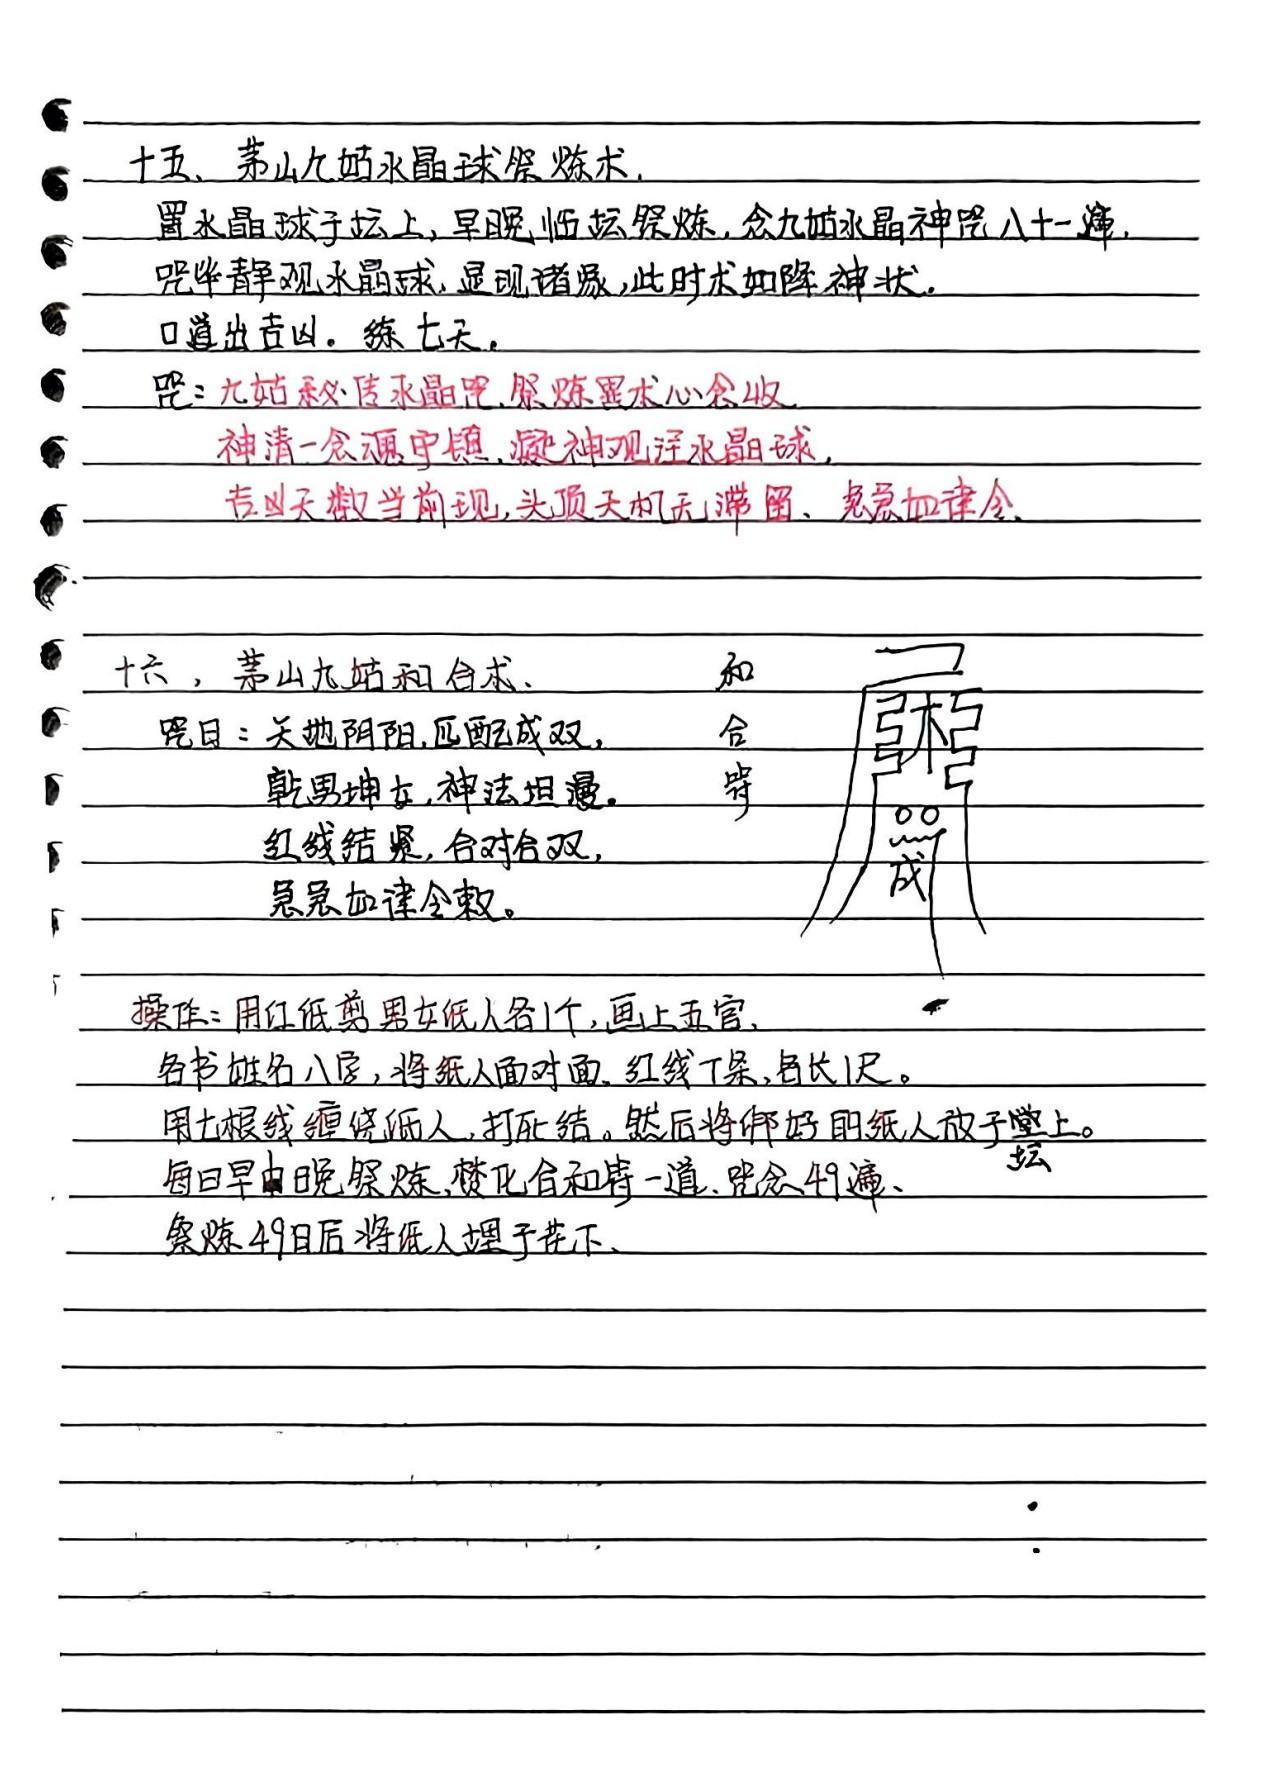 十五、茅山九姑水晶球祭炼术.
置水晶球于坛上,早晚临坛祭炼,念九姑水晶神咒八十一遍,
咒毕静观水晶球,显现诸象,此时术如降神状.
口道出吉凶。练七天。
咒:九姑秘传水晶咒.祭炼异术心念收
神清一念涌中镇,凝神观注水晶球,
吉凶天数当前现,头顶天机无滞留、急急如律令、
十六,茅山九姑和合术、
咒曰:天地阴阳,匹配成双,
乾男坤女,神法坦漫。
红线结紧,合对合双,
急急如律令敕。
和
合
符
成
操作:用红纸剪男女纸人各1个,画上五官、
各书姓名八字,将纸人面对面、红线7条,各长1尺。
用七根线缠绕纸人,打死结。然后将绑好的纸人放于堂上。
坛
每日早中晚祭炼、焚化合和符一道、咒念49遍、
祭炼49日后将纸人埋于花下、